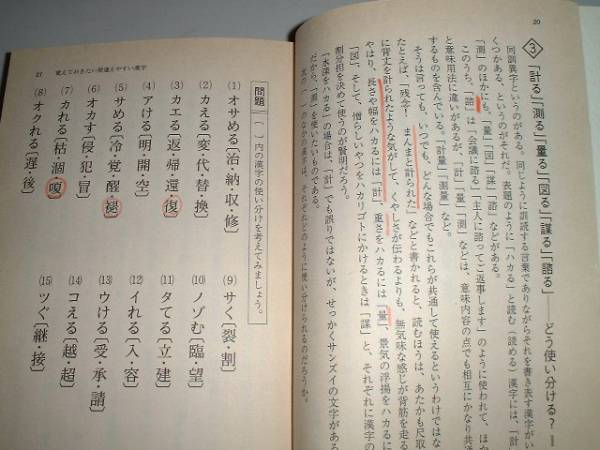 20
③「計る」「測る」「量る」「図る」「謀る」「諮る」――どう使い分ける?
同訓異字というのがある。同じように訓読する言葉でありながらそれを書き表す漢字がい
くつかある、というのがそれだ。表題のように「ハカる」と読む(読める)漢字には、「計」
「測」のほかにも、「量」「図」「謀」「諮」などがある。
このうち、「諮」は「会議に諮る」「主人に諮ってご返事します」のように使われて、ほか
と意味用法に違いがあるが、「計」「量」「測」などは、意味内容の点でも相互にかなり共通
するものを含んでいる。「計量」「測量」など。
そうは言っても、いつでも、どんな場合でもこれらが共通して使えるというわけではな
たとえば、「残念! まんまと計られた」などと書かれると、読むほうは、あたかも尺取
に背丈を計られたような気がして、くやしさが伝わるよりも、無気味な感じが背筋を走る
やはり、長さや幅をハカるには「計」、重さをハカるには「量」、景気の浮揚をハカるに
「図」、そして、憎らしいやつをハカリゴトにかけるときは「謀」と、それぞれに漢字の
割分担を決めて使うのが賢明だろう。
「水深をハカる」の場合は、「計」でも誤りではないが、せっかくサンズイの文字がある
だから、「測」を使いたいものである。
のなかの漢字は、それぞれどのように使い分けられるのだろうか。
21 覚えておきたい間違えやすい漢字
問題 ( )内の漢字の使い分けを考えてみましょう。
(1) オサめる〔治・納・収・修〕
(2) カえる〔変・代・替・換〕
(3) カエる〔返・帰・還・復〕
(4) アける〔明・開・空〕
(5) サめる〔冷・覚・醒・褪〕
(6) オカす〔侵・犯・冒〕
(7) カれる〔枯・涸・嗄〕
(8) オクれる〔遅・後〕
(9) サく〔裂・割〕
(10) ノゾむ〔臨・望〕
(11) タてる〔立・建〕
(12) イれる〔入・容〕
(13) ウける〔受・承・請〕
(14) コえる〔越・超〕
(15) ツぐ〔継・接〕